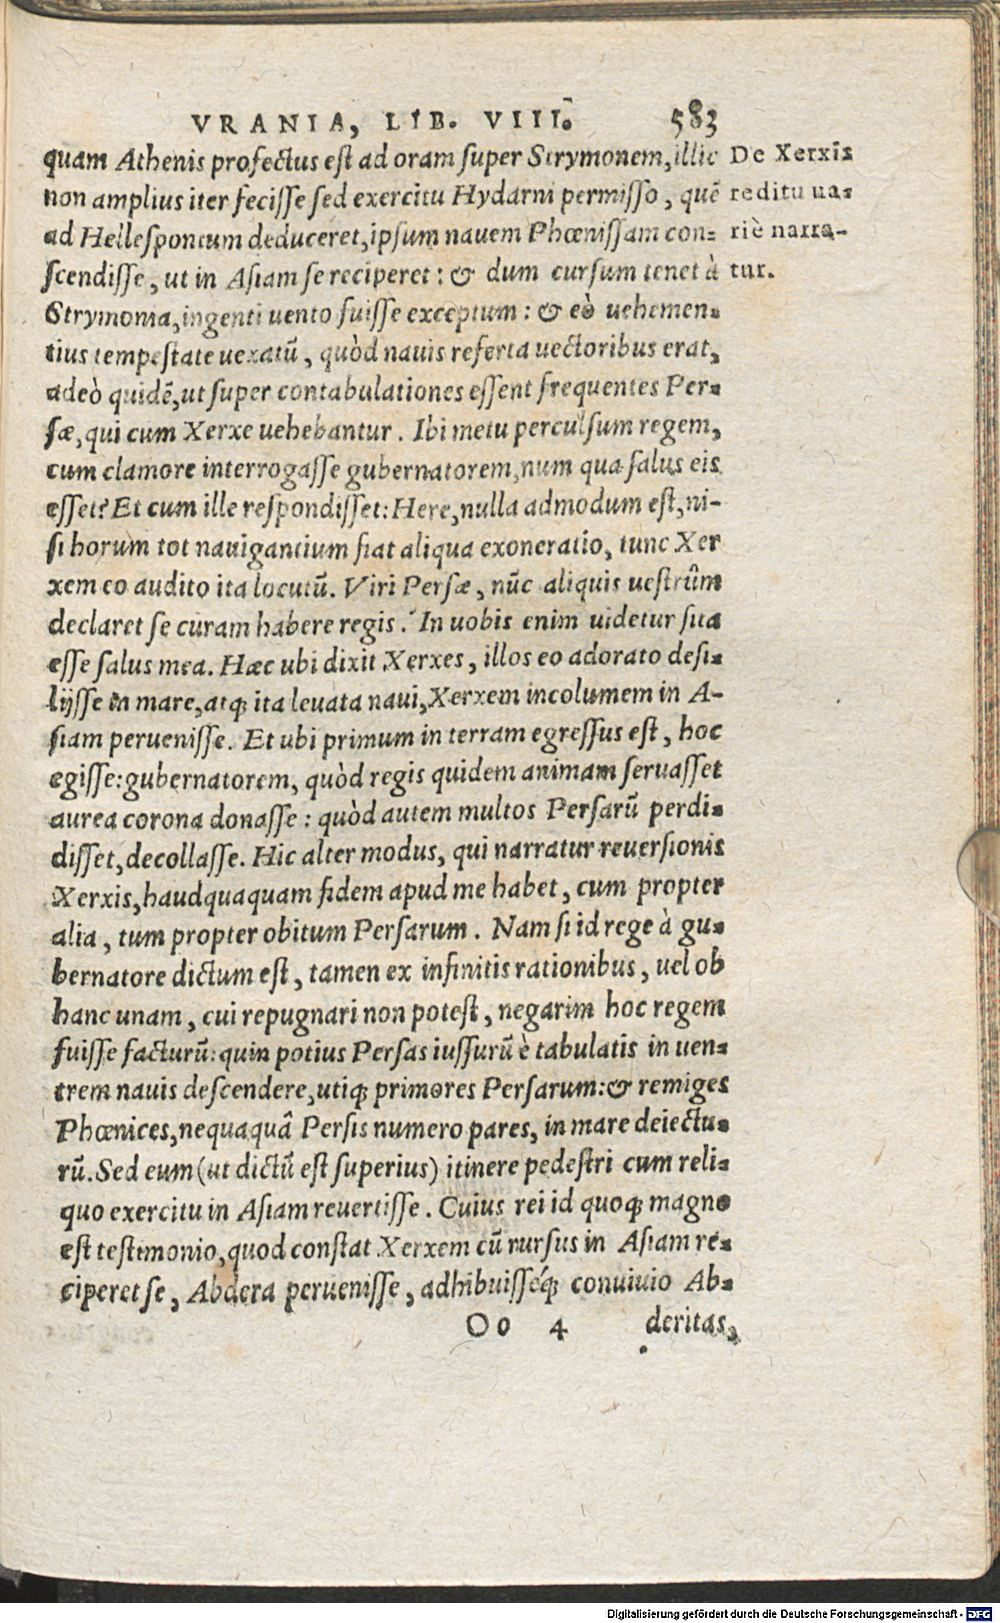 VRANIA, LIB. VIII. 583
quam Athenis profectus est ad oram super Strymonem, illic
non amplius iter fecisse sed exercitu Hydarni permisso, quē
ad Hellespontum deduceret, ipsum nauem Phœnissam con-
scendisse, ut in Asiam se reciperet: & dum cursum tenet à
Strymonia, ingenti uento fuisse exceptum: & eò uehemen-
tius tempestate uexatū, quòd nauis referta uectoribus erat,
adeò quidē, ut super contabulationes essent frequentes Per-
sæ, qui cum Xerxe uehebantur. Ibi metu perculsum regem,
cum clamore interrogasse gubernatorem, num qua salus eis
esset? Et cum ille respondisset: Here, nulla admodum est, ni-
si horum tot nauigantium fiat aliqua exoneratio, tunc Xer
xem eo audito ita locutū. Viri Persæ, nūc aliquis uestrûm
declaret se curam habere regis. In uobis enim uidetur sita
esse salus mea. Hæc ubi dixit Xerxes, illos eo adorato desi-
lijsse in mare, atq; ita leuata naui, Xerxem incolumem in A-
siam peruenisse. Et ubi primum in terram egressus est, hoc
egisse: gubernatorem, quòd regis quidem animam seruasset
aurea corona donasse: quòd autem multos Persarū perdi-
disset, decollasse. Hic alter modus, qui narratur reuersionis
Xerxis, haudquaquam fidem apud me habet, cum propter
alia, tum propter obitum Persarum. Nam si id rege à gu-
bernatore dictum est, tamen ex infinitis rationibus, uel ob
hanc unam, cui repugnari non potest, negarim hoc regem
fuisse facturū: quin potius Persas iussurū è tabulatis in uen-
trem nauis descendere, utiq; primores Persarum: & remiges
Phœnices, nequaquā Persis numero pares, in mare deiectu-
rū. Sed eum (ut dictū est superius) itinere pedestri cum reli-
quo exercitu in Asiam reuertisse. Cuius rei id quoq; magno
est testimonio, quod constat Xerxem cū rursus in Asiam re-
ciperet se, Abdera peruenisse, adhibuisséq; conuiuio Ab-
Oo 4 deritas,
De Xerxis
reditu ua-
riè narra-
tur.
Digitalisierung gefördert durch die Deutsche Forschungsgemeinschaft - DFG